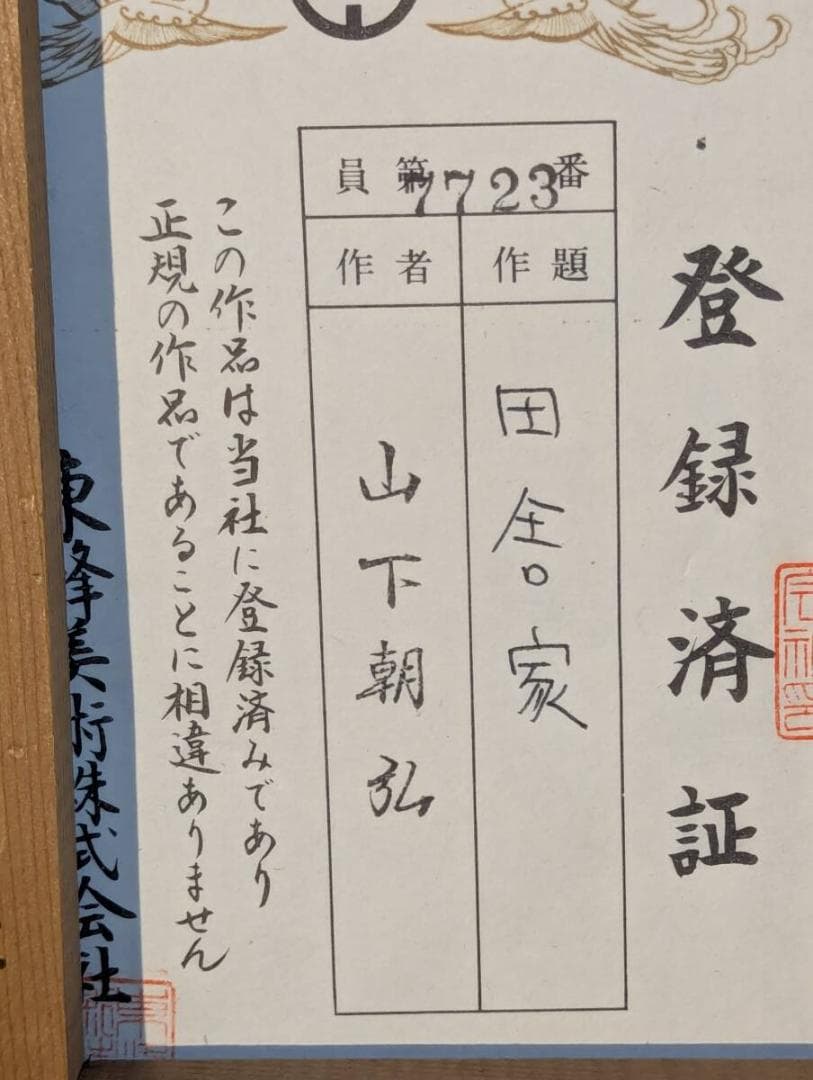 登録済証
員第7723番
作題
田舎家
作者
山下朝弘
この作品は当社に登録済みであり
正規の作品であることに相違ありません
東峰美術株式会社